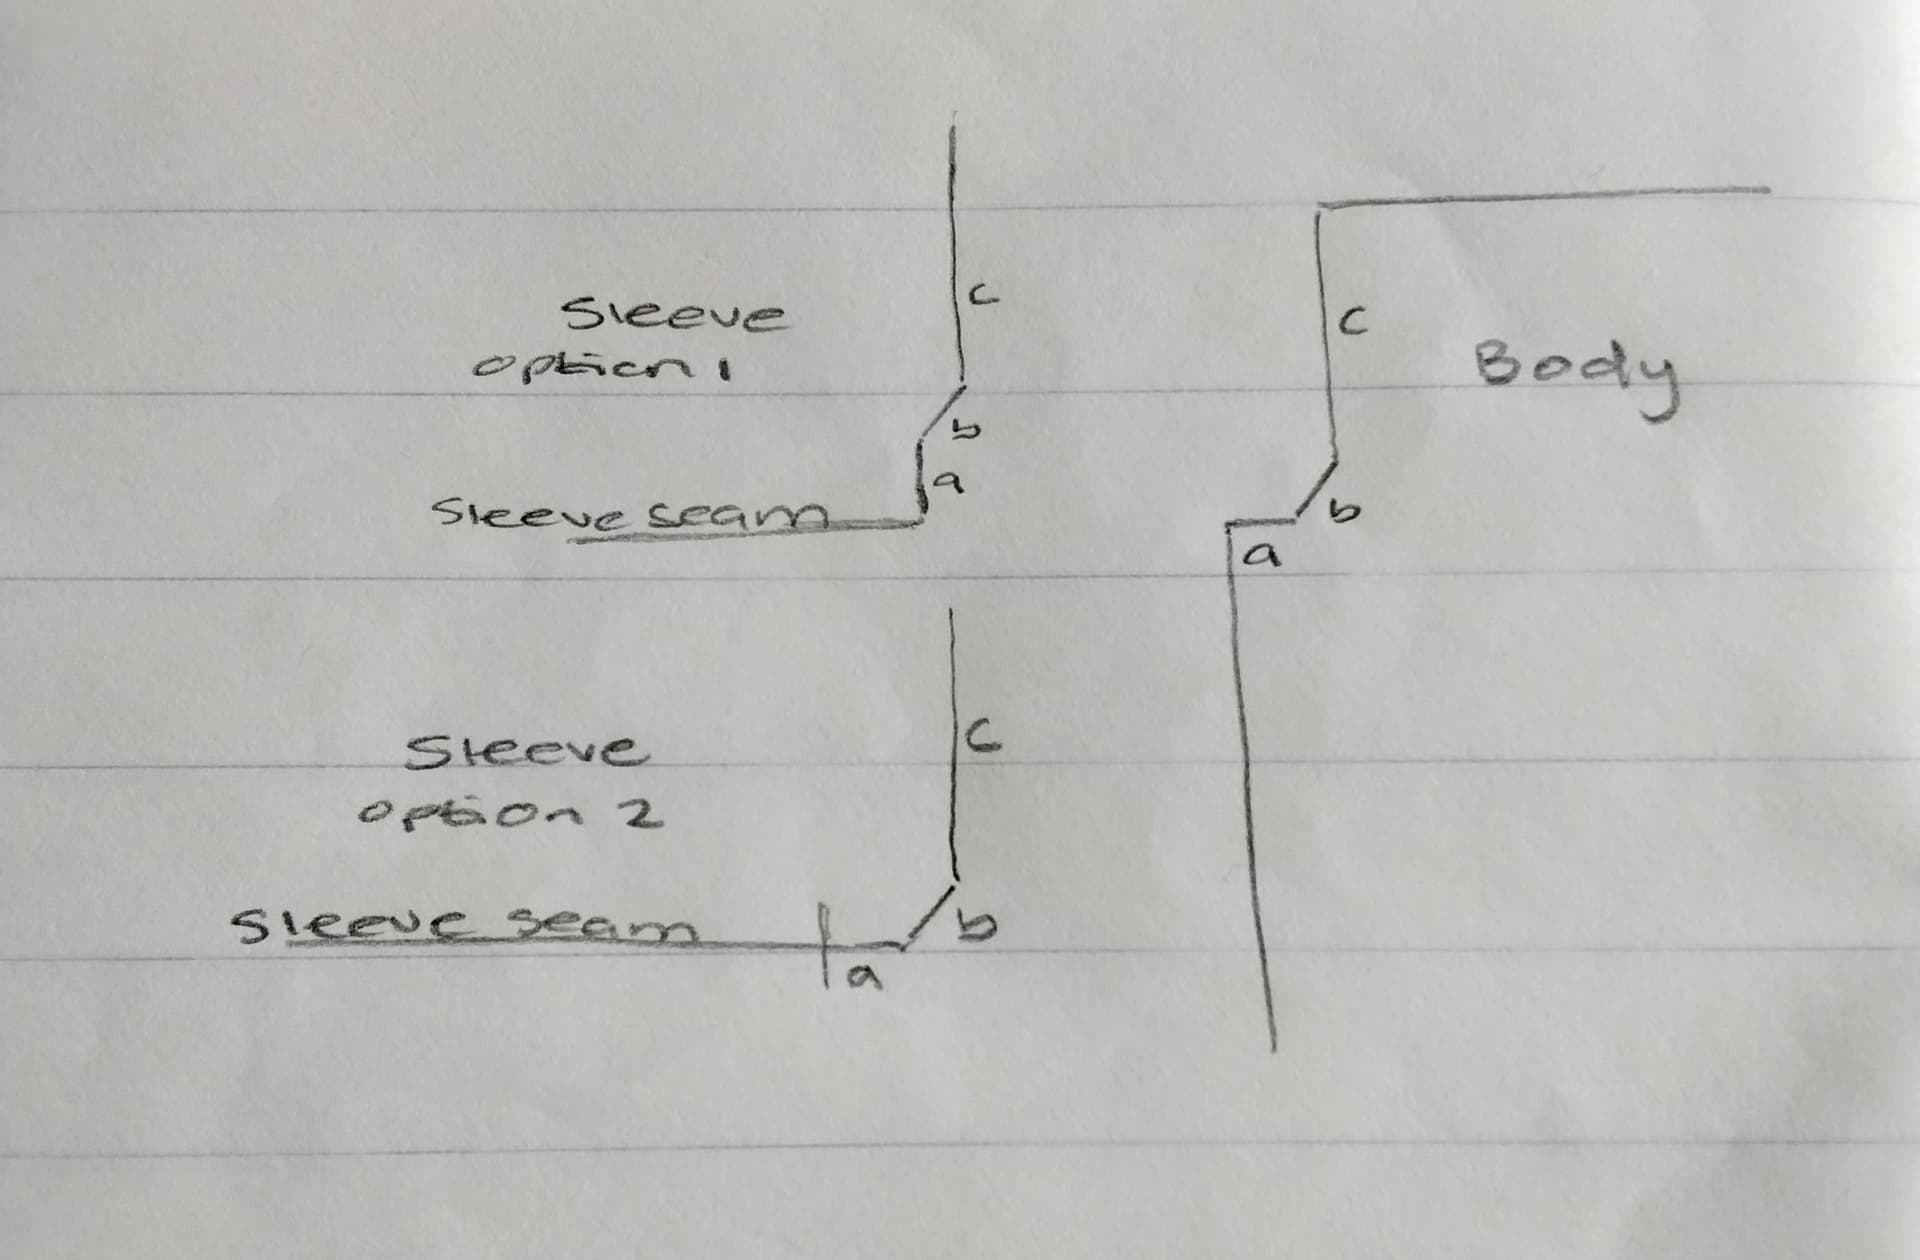 c
Sleeve
option 1
b
a
Sleeve seam
c
Body
b
a
c
Sleeve
option 2
Sleeve seam
b
a